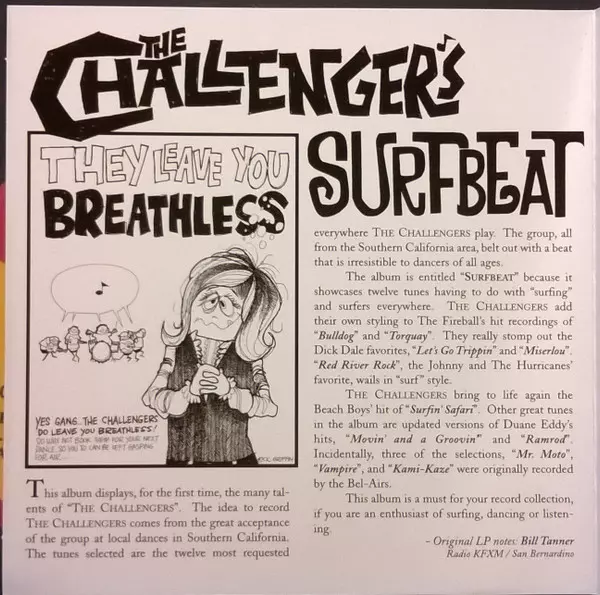 THE
CHALLENGER'S
SURFBEAT
THEY LEAVE YOU
BREATHLESS
YES GANG.. THE CHALLENGERS
DO LEAVE YOU BREATHLESS!
SO WHY NOT BOOK THEM FOR YOUR NEXT
DANCE.. SO YOU TO CAN BE LEFT GASPING
FOR AIR...
RICK GRIFFIN
This album displays, for the first time, the many tal-
ents of "THE CHALLENGERS". The idea to record
THE CHALLENGERS comes from the great acceptance
of the group at local dances in Southern California.
The tunes selected are the twelve most requested
everywhere THE CHALLENGERS play. The group, all
from the Southern California area, belt out with a beat
that is irresistible to dancers of all ages.
The album is entitled "SURFBEAT" because it
showcases twelve tunes having to do with "surfing"
and surfers everywhere. THE CHALLENGERS add
their own styling to The Fireball's hit recordings of
"Bulldog" and "Torquay". They really stomp out the
Dick Dale favorites, "Let's Go Trippin" and "Miserlou".
"Red River Rock", the Johnny and The Hurricanes'
favorite, wails in "surf" style.
THE CHALLENGERS bring to life again the
Beach Boys' hit of "Surfin' Safari". Other great tunes
in the album are updated versions of Duane Eddy's
hits, "Movin' and a Groovin'" and "Ramrod".
Incidentally, three of the selections, "Mr. Moto",
"Vampire", and "Kami-Kaze" were originally recorded
by the Bel-Airs.
This album is a must for your record collection,
if you are an enthusiast of surfing, dancing or listen-
ing.
- Original LP notes: Bill Tanner
Radio KFXM / San Bernardino